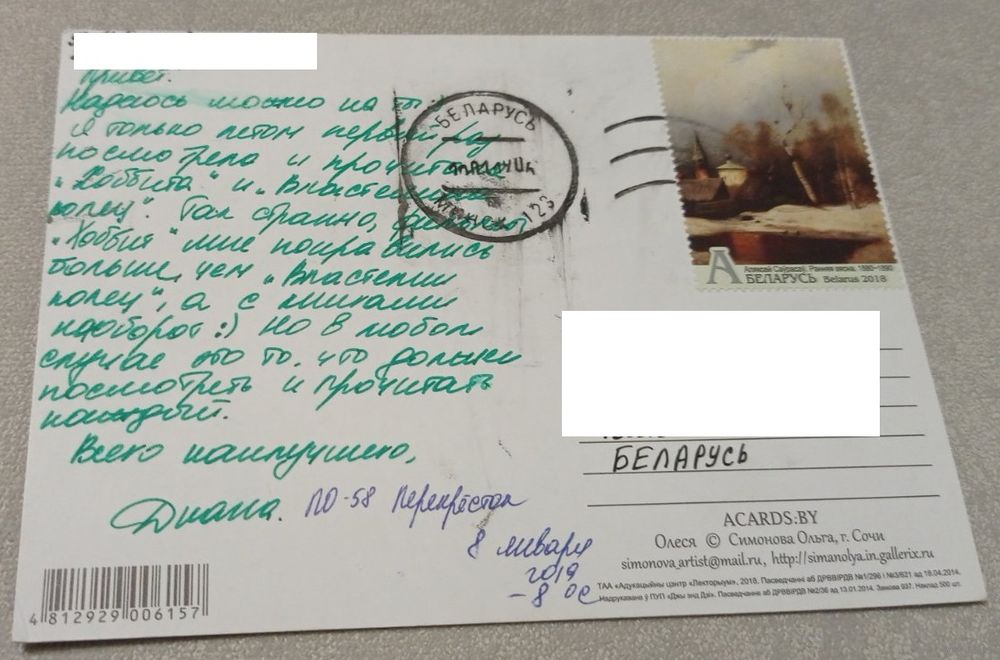 Привет.
Надеюсь можно на ты :)
Я только летом первый раз
посмотрела и прочитала
"Хоббита" и "Властелина
колец". Так странно, фильмы
"Хоббит" мне понравились
больше, чем "Властелин
колец", а с книгами
наоборот :) Но в любом
случае это то, что должен
посмотреть и прочитать
каждый.
Всего наилучшего,
Диана.
ПО-58 Перекрёсток
8 января
2019
-8 °C
БЕЛАРУСЬ
МІНСК 123
А
Аляксей Саўрасаў. Ранняя вясна. 1880-1890
БЕЛАРУСЬ Belarus 2018
БЕЛАРУСЬ
ACARDS.BY
Олеся © Симонова Ольга, г. Сочи
simonova_artist@mail.ru, http://simanolya.in.gallerix.ru
ТАА «Адукацыйны цэнтр «Лекторыум», 2018. Пасведчанні аб ДРВВІРДВ №1/296 і №3/621 ад 18.04.2014.
Надрукавана ў ПУП «Джы энд Дзі». Пасведчанне аб ДРВВІРДВ №2/36 ад 13.01.2014. Замова 937. Наклад 500 шт.
4 812929 006157